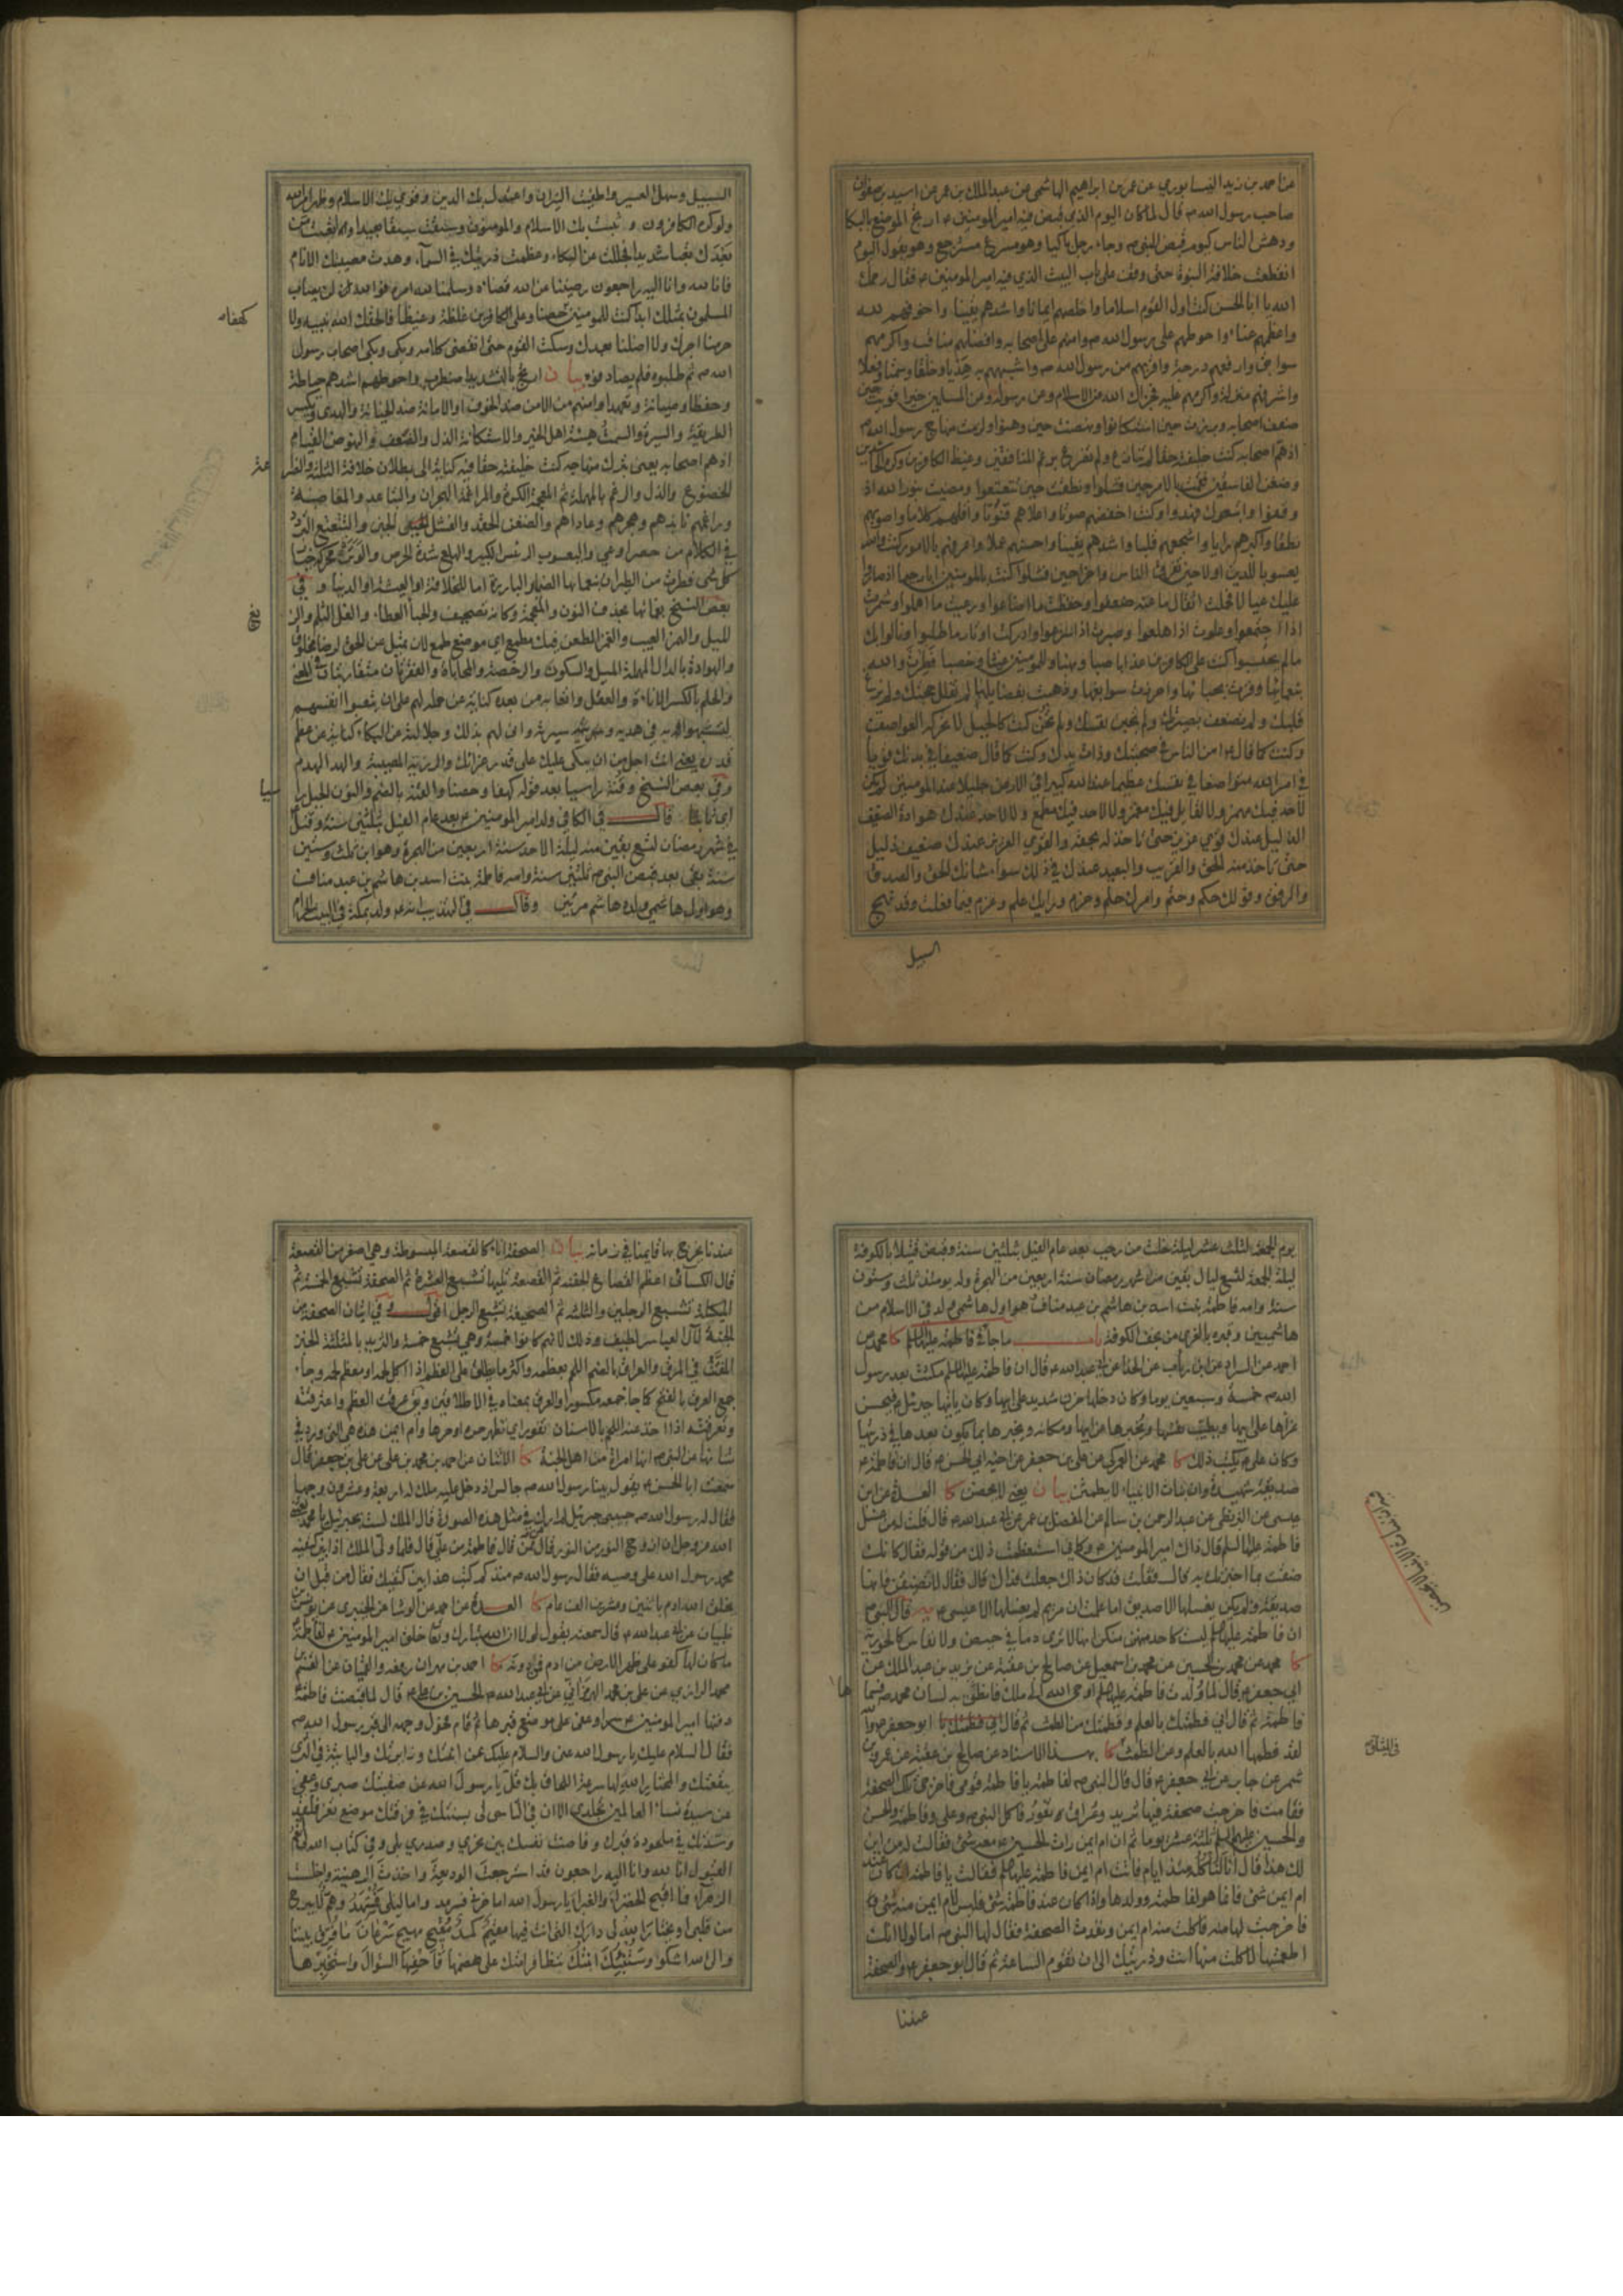 عن احمد بن زيد النيسابوري عن عمر بن ابراهيم الهاشمي عن عبد الملك بن عمر عن اسيد بن صفوان
صاحب رسول الله ص قال لما كان اليوم الذي قبض فيه امير المومنين ع ارتج الموضع بالبكا
ودهش الناس كيوم قبض النبي ص وجاء رجل باكيا وهو مسرع مسترجع وهو يقول اليوم
انقطعت خلافة النبوة حتى وقف على باب البيت الذي فيه امير المومنين ع فقال رحمك
الله يا ابا الحسن كنت اول القوم اسلاما واخلصهم ايمانا واشدهم يقينا واخوفهم لله
واعظمهم عناء واحوطهم على رسول الله ص وامنهم على اصحابه وافضلهم مناقب واكرمهم
سوابق وارفعهم درجة واقربهم من رسول الله ص واشبههم به هديا وخلقا وسمتا وفعلا
واشرفهم منزلة واكرمهم عليه فجزاك الله عن الاسلام وعن رسوله وعن المسلمين خيرا قويت حين
ضعف اصحابه وبرزت حين استكانوا ونهضت حين وهنوا ولزمت منهاج رسول الله ص
اذ هم اصحابه كنت خليفته حقا لم تنازع ولم تضرع برغم المنافقين وغيظ الكافرين وكره الحاسدين
وضغن الفاسقين فقمت بالامر حين فشلوا ونطقت حين تتعتعوا ومضيت بنور الله اذ
وقفوا واتبعوك فهدوا وكنت اخفضهم صوتا واعلاهم قنوتا واقلهم كلاما واصوبهم
نطقا واكبرهم رايا واشجعهم قلبا واشدهم يقينا واحسنهم عملا واعرفهم بالامور كنت والله
يعسوبا للدين اولا حين تفرق الناس واخرا حين فشلوا كنت بالمومنين ابا رحيما اذ صاروا
عليك عيالا فحملت اثقال ما عنه ضعفوا وحفظت ما اضاعوا ورعيت ما اهملوا وشمرت
اذا اجتمعوا وعلوت اذا هلعوا وصبرت اذ اسرعوا وادركت اوتار ما طلبوا ونالوا بك
ما لم يحتسبوا كنت على الكافرين عذابا صبا ونهبا وللمومنين غيثا وخصبا فطرت والله
بنعمائها وفزت بحبائها واحرزت سوابقها وذهبت بفضايلها لم تفلل حجتك ولم يزغ
قلبك ولم تضعف بصيرتك ولم تجبن نفسك ولم تخن كنت كالجبل لا تحركه العواصف
وكنت كما قال ع امن الناس في صحبتك وذات يدك وكنت كما قال ضعيفا في بدنك قويا
في امر الله متواضعا في نفسك عظيما عند الله كبيرا في الارض جليلا عند المومنين لم يكن
لاحد فيك مهمز ولا لقايل فيك مغمز ولا لاحد فيك مطمع ولا لاحد عندك هوادة الضعيف
الذليل عندك قوي عزيز حتى تاخذ له بحقه والقوي العزيز عندك ضعيف ذليل
حتى تاخذ منه الحق والقريب والبعيد عندك في ذلك سواء شانك الحق والصدق
والرفق وقولك حكم وحتم وامرك حلم وحزم ورايك علم وعزم فيما فعلت وقد نهج
السبيل
السبيل وسهل العسير واطفيت النيران واعتدل بك الدين وقوي بك الاسلام وظهر امر الله
ولو كره الكافرون وثبت بك الاسلام والمومنون وسبقت سبقا بعيدا واتعبت من
بعدك تعبا شديدا فجللت عن البكاء وعظمت رزيتك في السماء وهدت مصيبتك الانام
فانا لله وانا اليه راجعون رضينا عن الله قضاه وسلمنا لله امره فوالله لن يصاب
المسلمون بمثلك ابدا كنت للمومنين حصنا وعلى الكافرين غلظة وغيظا فالحقك الله بنبيه ولا
كهفا
حرمنا اجرك ولا اضلنا بعدك وسكت القوم حتى انقضى كلامه وبكى وبكى اصحاب رسول
الله ص ثم طلبوه فلم يصادفوه بيان ارتج بالتشديد اضطرب واحوطهم اشدهم حياطة
وحفظا وصيانة وتعهدا وامنهم من الامن ضد الخوف او الامانة ضد الخيانة والهدي
الطريقة والسيرة والسمت هيئة اهل الخير والاستكانة الذل والضعف والنهوض القيام
اذ هم اصحابه يعني بترك منهاجه كنت خليفته حقا فيه كناية الى بطلان خلافة الثلثة
للخضوع والذل والرغم بالمهملة ثم المعجمة الكره والمراغمة الهجران والتباعد والمغاضبة
وراغمهم نابذهم وهجرهم وعاداهم والضغن الحقد والفشل الجبن والتتعتع التردد
في الكلام من حصر او عي واليعسوب الرئيس الكبير والهلع شدة الحرص
كل شى فطرت من الطيران بنعمائها الضماير البارزة اما للخلافة او البعثة او الدنيا و في
بعض النسخ
نخ
وفي بعض النسخ وقنة راسيا بعد قوله كهفا وحصنا والقنة بالضم والنون الجبل
سيا
قال في الكافي ولد امير المومنين ع بعد عام الفيل بثلثين سنة وقتل
في شهر رمضان لتسع بقين منه ليلة الاحد سنة اربعين من الهجرة وهو ابن ثلث وستين
سنة بقي بعد قبض النبي ص ثلثين سنة وامه فاطمة بنت اسد بن هاشم بن عبد مناف
وهو اول هاشمي ولده هاشم مرتين وقال في التهذيب انه ع ولد بمكة في البيت الحرام
يوم الجمعة لثلث عشر ليلة خلت من رجب بعد عام الفيل بثلثين سنة وقبض قتيلا بالكوفة
ليلة الجمعة لتسع ليال بقين من شهر رمضان سنة اربعين من الهجرة وله يومئذ ثلث وستون
سنة وامه فاطمة بنت اسد بن هاشم بن عبد مناف وهو اول هاشمي ولد في الاسلام من
هاشميين وقبره بالغري من نجف الكوفة باب ما جاء في فاطمة عليها السلم كا محمد عن
احمد عن السراد عن ابن رئاب عن الحذا عن ابي عبد الله ع قال ان فاطمة عليها السلم مكثت بعد رسول
الله ص خمسة وسبعين يوما وكان دخلها حزن شديد على ابيها وكان ياتيها جبرئيل فيحسن
عزاها على ابيها ويطيب نفسها ويخبرها عن ابيها ومكانه ويخبرها بما يكون بعدها في ذريتها
وكان على ع يكتب ذلك كا محمد عن العمركي عن علي بن جعفر عن اخيه ابي الحسن ع قال ان فاطمة ع
صديقة شهيدة وان بنات الانبياء لا يطمثن بيان يعني لا يحضن كا العدة عن ابن
عيسى عن البزنطي عن عبد الرحمن بن سالم عن المفضل بن عمر عن ابي عبد الله ع قال قلت له من غسل
فاطمة عليها السلم قال ذاك امير المومنين ع وكاني استعظمت ذلك من قوله فقال كانك
ضقت مما اخبرتك به قال فقلت قد كان ذاك جعلت فداك قال فقال لا تضيقن فانها
صديقة ولم يكن يغسلها الا صديق اما علمت ان مريم لم يغسلها الا عيسى يه قال النبي ص
ان فاطمة عليها السلم ليست كاحد منكن انها لا ترى دما في حيض ولا نفاس كالحورية
كا محمد عن محمد بن الحسين عن محمد بن اسمعيل عن صالح بن عقبة عن يزيد بن عبد الملك عن
ابي جعفر ع قال لما ولدت فاطمة عليها السلم اوحى الله الى ملك فانطلق به لسان محمد ص فسما
ها
فاطمة ثم قال اني فطمتك بالعلم وفطمتك من الطمث ثم قال ابو جعفر ع والله
لقد فطمها الله بالعلم وعن الطمث كا بهذا الاسناد عن صالح بن عقبة عن عمرو بن
في الميثاق
شمر عن جابر عن ابي جعفر ع قال قال النبي ص لفاطمة يا فاطمة قومي فاخرجي تلك الصحفة
فقامت فاخرجت صحفة فيها ثريد وعراق يفور فاكل النبي ص وعلي وفاطمة والحسن
والحسين عليهم السلم ثلثة عشر يوما ثم ان ام ايمن رات الحسين ع معه شى فقالت له من اين
لك هذا قال انا لناكله منذ ايام فاتت ام ايمن فاطمة عليها السلم فقالت يا فاطمة اذا كان عند
ام ايمن شى فانما هو لفاطمة وولدها واذا كان عند فاطمة شى فليس لام ايمن منه شى
فاخرجت لها منه فاكلت منه ام ايمن ونفدت الصحفة فقال لها النبي ص اما لولا انك
اطعمتها لاكلت منها انت وذريتك الى ان تقوم الساعة ثم قال ابو جعفر ع والصحفة
عندنا
عندنا يخرج بها قايمنا في زمانه بيان الصحفة اناء كالقصعة المبسوطة وهي اصغر من القصعة
قال الكسائي اعظم القصاع الجفنة ثم القصعة تليها تشبع العشرة ثم الصحفة تشبع الخمسة ثم
الميكلة تشبع الرجلين والثلثة ثم الصحيفة تشبع الرجل اقول و في اتيان الصحفة من
الجنة لآل العبا سر لطيف وذلك لانهم كانوا خمسة وهي تشبع خمسة والثريد بالمثلثة الخبز
المفتت في المرق والعراق بالضم اللحم بعظمه واكثر ما يطلق على العظم اذا اكل لحمه او معظم لحمه وجاء
جمع العرق بالفتح كما جا جمعه مكسورا والعرق بمعناه في الاطلاقين ويق عرقت العظم واعترقته
وتعرقته اذا اخذت عنه اللحم بالاسنان تفور اي تظهر حره او حرها وام ايمن هذه هي التي ورد في
شانها عن النبي ص انها امراة من اهل الجنة كا الاثنان عن احمد بن محمد بن علي عن علي بن جعفر قال
سمعت ابا الحسن ع يقول بينا رسول الله ص جالس اذ دخل عليه ملك له اربعة وعشرون وجها
فقال له رسول الله ص حبيبي جبرئيل لم ارك في مثل هذه الصورة قال الملك لست بجبرئيل يا محمد بعثني
الله عز وجل ان ازوج النور من النور قال من ممن قال فاطمة من علي قال فلما ولى الملك اذا بين كتفيه
محمد رسول الله علي وصيه فقال رسول الله ص منذ كم كتب هذا بين كتفيك فقال من قبل ان
يخلق الله ادم باثنين وعشرين الف عام كا العدة عن احمد عن الوشا عن الخيبري عن يونس بن
ظبيان عن ابي عبد الله ع قال سمعته يقول لولا ان الله تبارك وتعالى خلق امير المومنين ع لفاطمة
ما كان لها كفو على ظهر الارض من ادم فمن دونه كا احمد بن مهران رفعه والقميان عن القسم بن
محمد الرازي عن علي بن محمد الهرمزاني عن ابي عبد الله الحسين بن علي ع قال لما قبضت فاطمة
دفنها امير المومنين ع سرا وعفى على موضع قبرها ثم قام فحول وجهه الى قبر رسول الله ص
فقال السلام عليك يا رسول الله عني والسلام عليك عن ابنتك وزايرتك والبايتة في الثرى
ببقعتك والمختار الله لها سرعة اللحاق بك قل يا رسول الله عن صفيتك صبري وعفى
عن سيدة نساء العالمين تجلدي الا ان في التاسي لي بسنتك في فرقتك موضع تعز فلقد
وسدتك في ملحودة قبرك وفاضت نفسك بين نحري وصدري بلى وفي كتاب الله لي انعم
القبول انا لله وانا اليه راجعون قد استرجعت الوديعة واخذت الرهينة واخلست
الزهراء فما اقبح الخضراء والغبراء يا رسول الله اما حزني فسرمد واما ليلي فمسهد وهم لا يبرح
من قلبي او يختار الله لي دارك التي انت فيها مقيم كمد مقيح وهم مهيج سرعان ما فرق بيننا
والى الله اشكو وستنبئك ابنتك بتظافر امتك على هضمها فاحفها السؤال واستخبرها